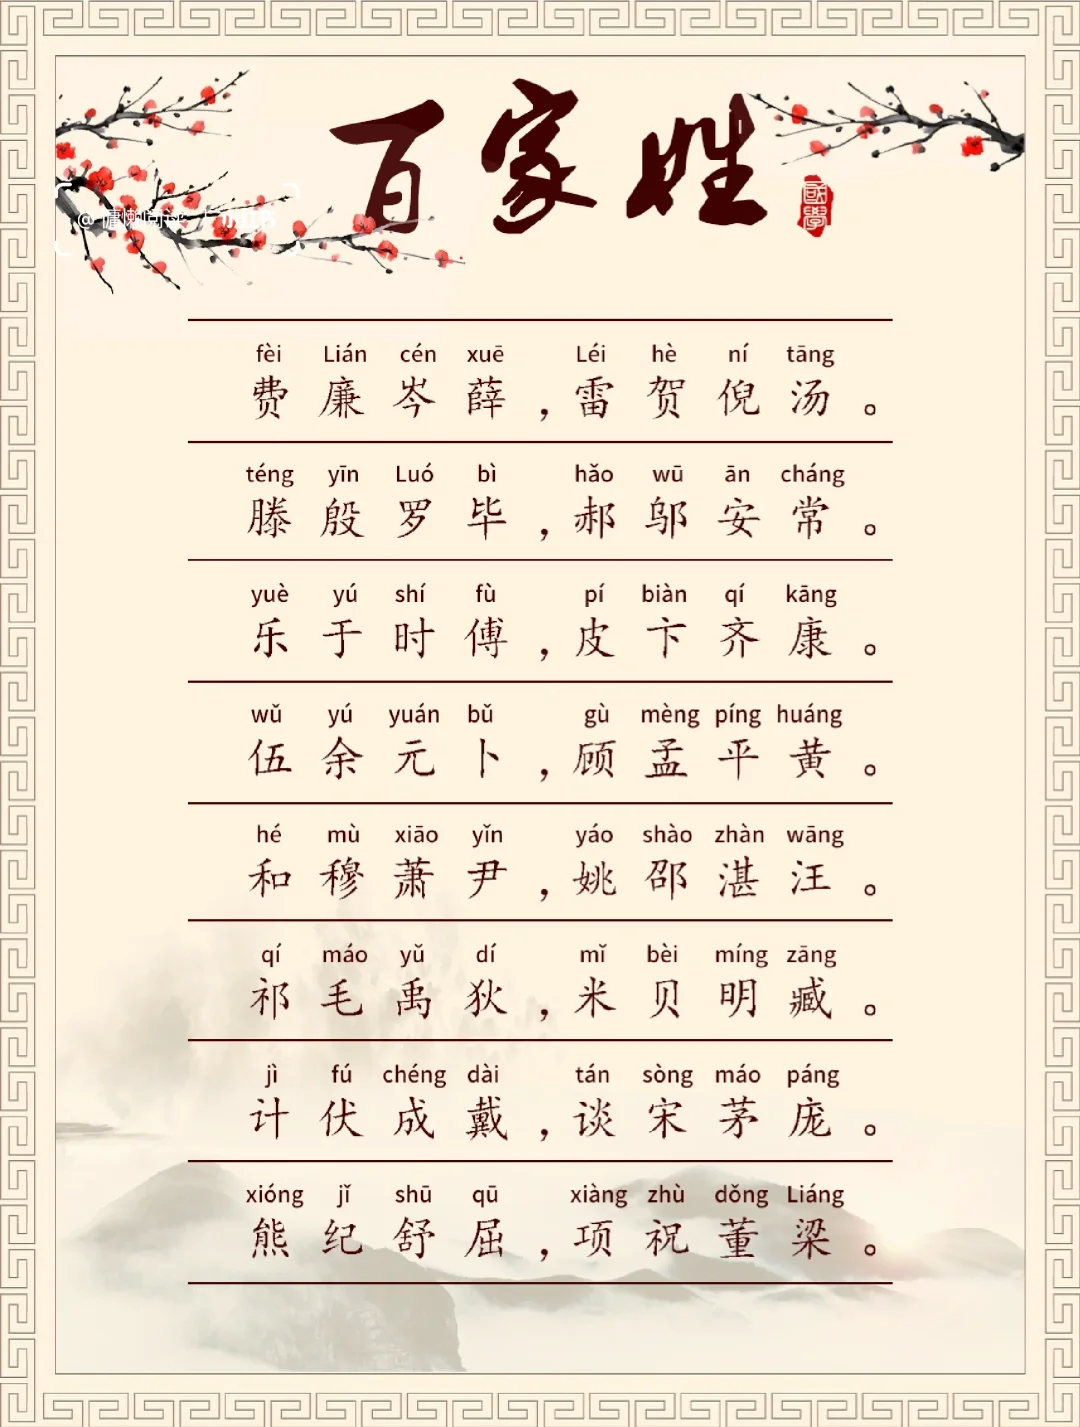 百家姓
國學
fèi Lián cén xuē Léi hè ní tāng
费廉岑薛，雷贺倪汤。
téng yīn Luó bì hǎo wū ān cháng
滕殷罗毕，郝邬安常。
yuè yú shí fù pí biàn qí kāng
乐于时傅，皮卞齐康。
wǔ yú yuán bǔ gù mèng píng huáng
伍余元卜，顾孟平黄。
hé mù xiāo yǐn yáo shào zhàn wāng
和穆萧尹，姚邵湛汪。
qí máo yǔ dí mǐ bèi míng zāng
祁毛禹狄，米贝明臧。
jì fú chéng dài tán sòng máo páng
计伏成戴，谈宋茅庞。
xióng jǐ shū qū xiàng zhù dǒng Liáng
熊纪舒屈，项祝董梁。